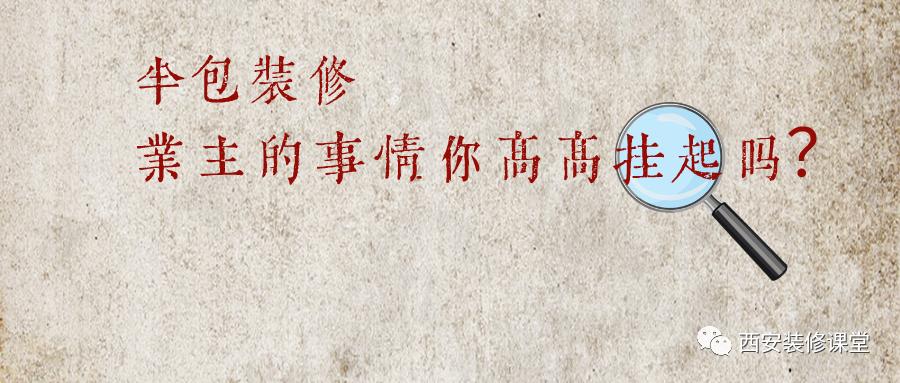 半包装修
業主的事情你高高挂起吗?
西安装修课堂